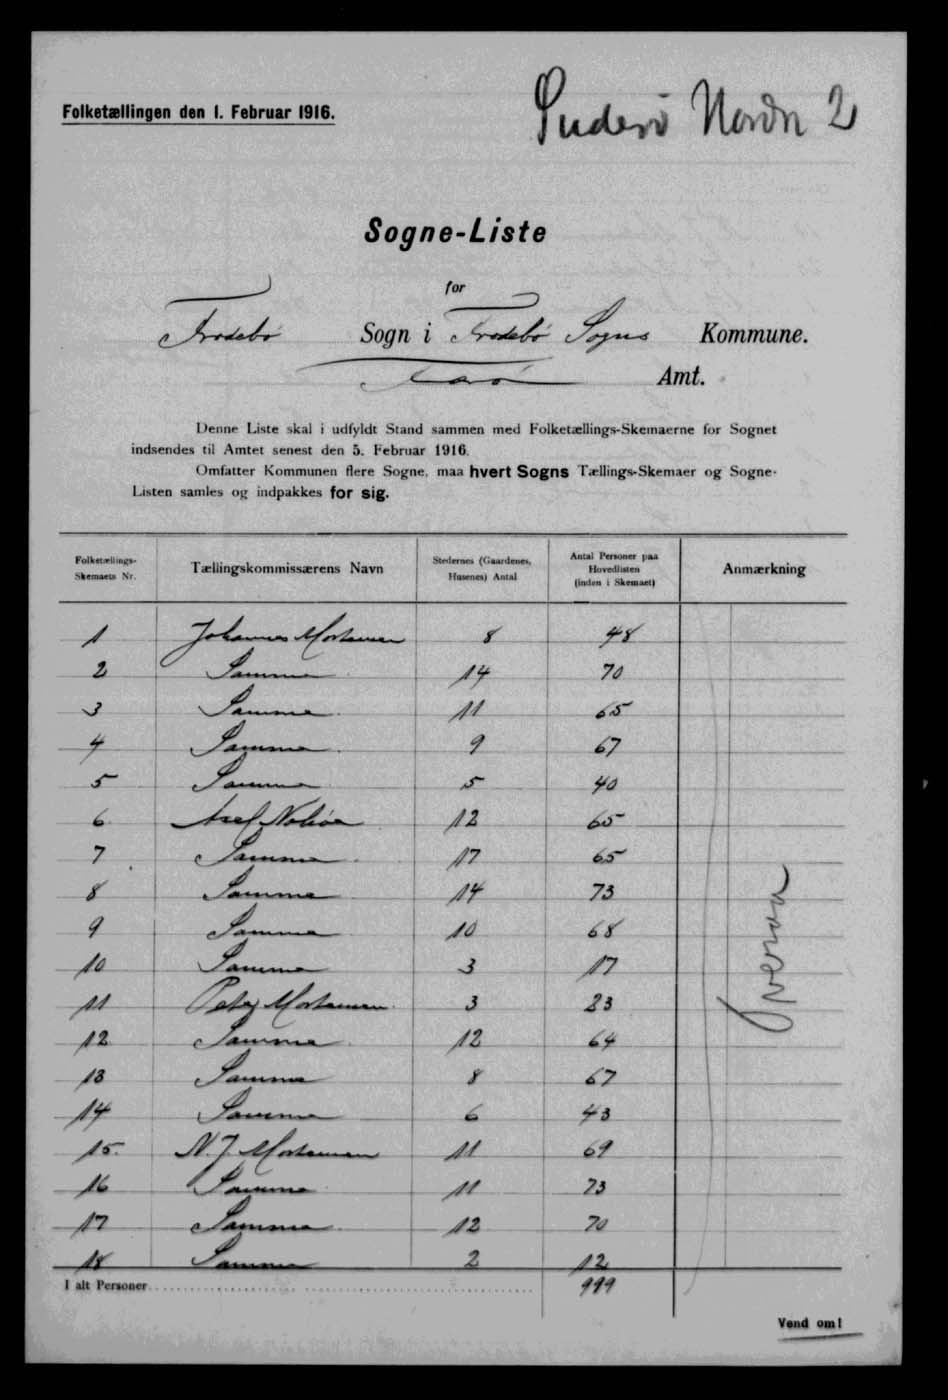 Folketællingen den 1. Februar 1916.
Suderø Nordre 2
Sogne-Liste
for
Frodebø Sogn i Frodebø Sogns Kommune.
Færø Amt.
Denne Liste skal i udfyldt Stand sammen med Folketællings-Skemaerne for Sognet
indsendes til Amtet senest den 5. Februar 1916.
Omfatter Kommunen flere Sogne, maa hvert Sogns Tællings-Skemaer og Sogne-
Listen samles og indpakkes for sig.
Folketællings-Skemaets Nr. Tællingskommissærens Navn Stedernes (Gaardenes, Husenes) Antal Antal Personer paa Hovedlisten (inden i Skemaet) Anmærkning
1 Johannes Mortensen 8 48
2 Samme 14 70
3 Samme 11 65
4 Samme 9 67
5 Samme 5 40
6 Axel Nolsøe 12 65
7 Samme 17 65
8 Samme 14 73
9 Samme 10 68
10 Samme 3 17
11 Peter Mortensen 3 23
12 Samme 12 64
13 Samme 8 67
14 Samme 6 43
15. N. J. Mortensen 11 69
16 Samme 11 73
17 Samme 12 70
18 Samme 2 12
I alt Personer 999
Tveraa
Vend om!